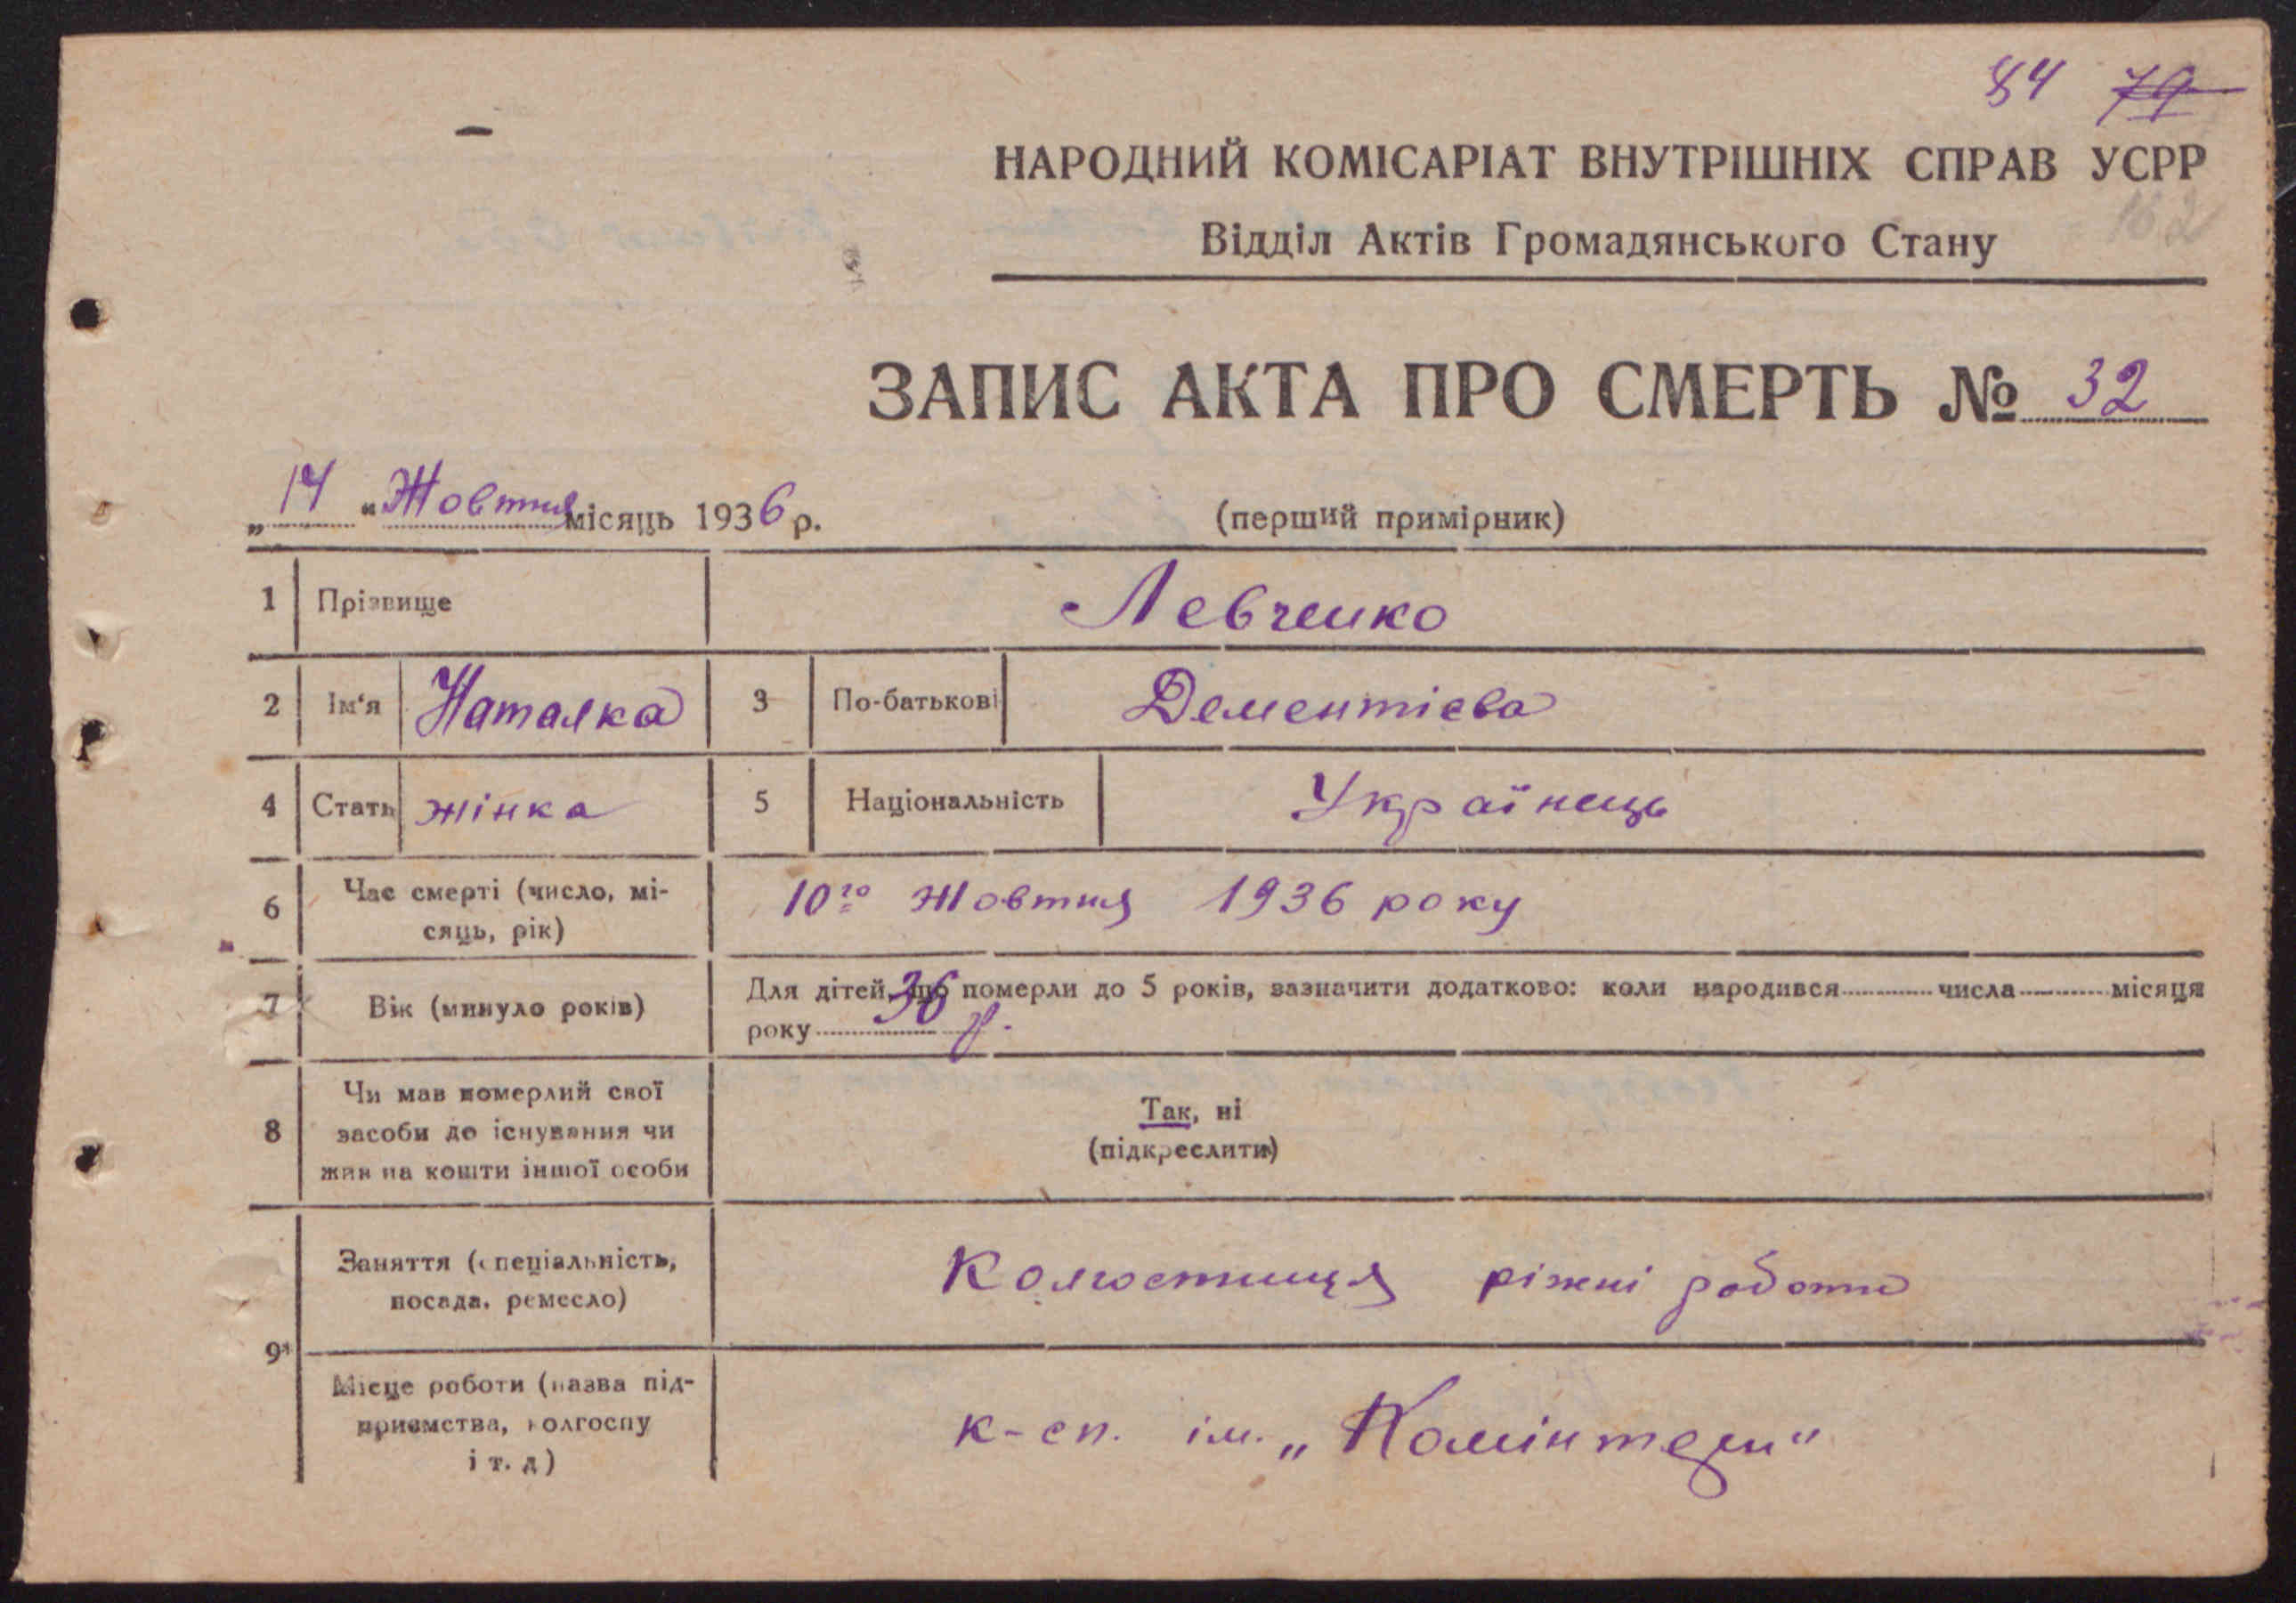 84 79
НАРОДНИЙ КОМІСАРІАТ ВНУТРІШНІХ СПРАВ УСРР
162
Відділ Актів Громадянського Стану
ЗАПИС АКТА ПРО СМЕРТЬ № 32
„14“ Жовтня місяць 1936 р. (перший примірник)
1 Прізвище Левченко
2 Ім'я Наталка 3 По-батькові Дементієва
4 Стать жінка 5 Національність Українець
6 Час смерті (число, мі-
сяць, рік) 10го Жовтня 1936 року
7 Вік (минуло років) Для дітей, що померли до 5 років, зазначити додатково: коли народився числа місяця
року 36 р.
8 Чи мав померлий свої
засоби до існування чи
жив на кошти іншої особи
Так, ні
(підкреслити)
9 Заняття (спеціальність,
посада, ремесло) Колгоспниця ріжні роботи
Місце роботи (назва під-
приємства, колгоспу
і т. д) к-сп. ім. „Комінтерн“